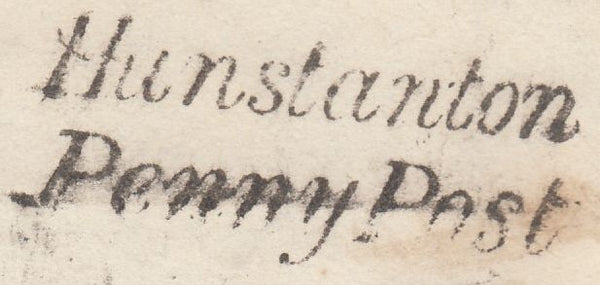 Hunstanton
Penny Post